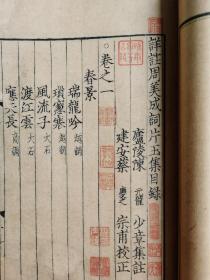 詳註周美成詞片玉集目錄
廬陵陳 元龍 少章集註
建安蔡 慶之 宗甫校正
卷之一
春景
瑞龍吟 越調
瑣窗寒 越調
風流子 大石
渡江雲 大石
應天長 商調